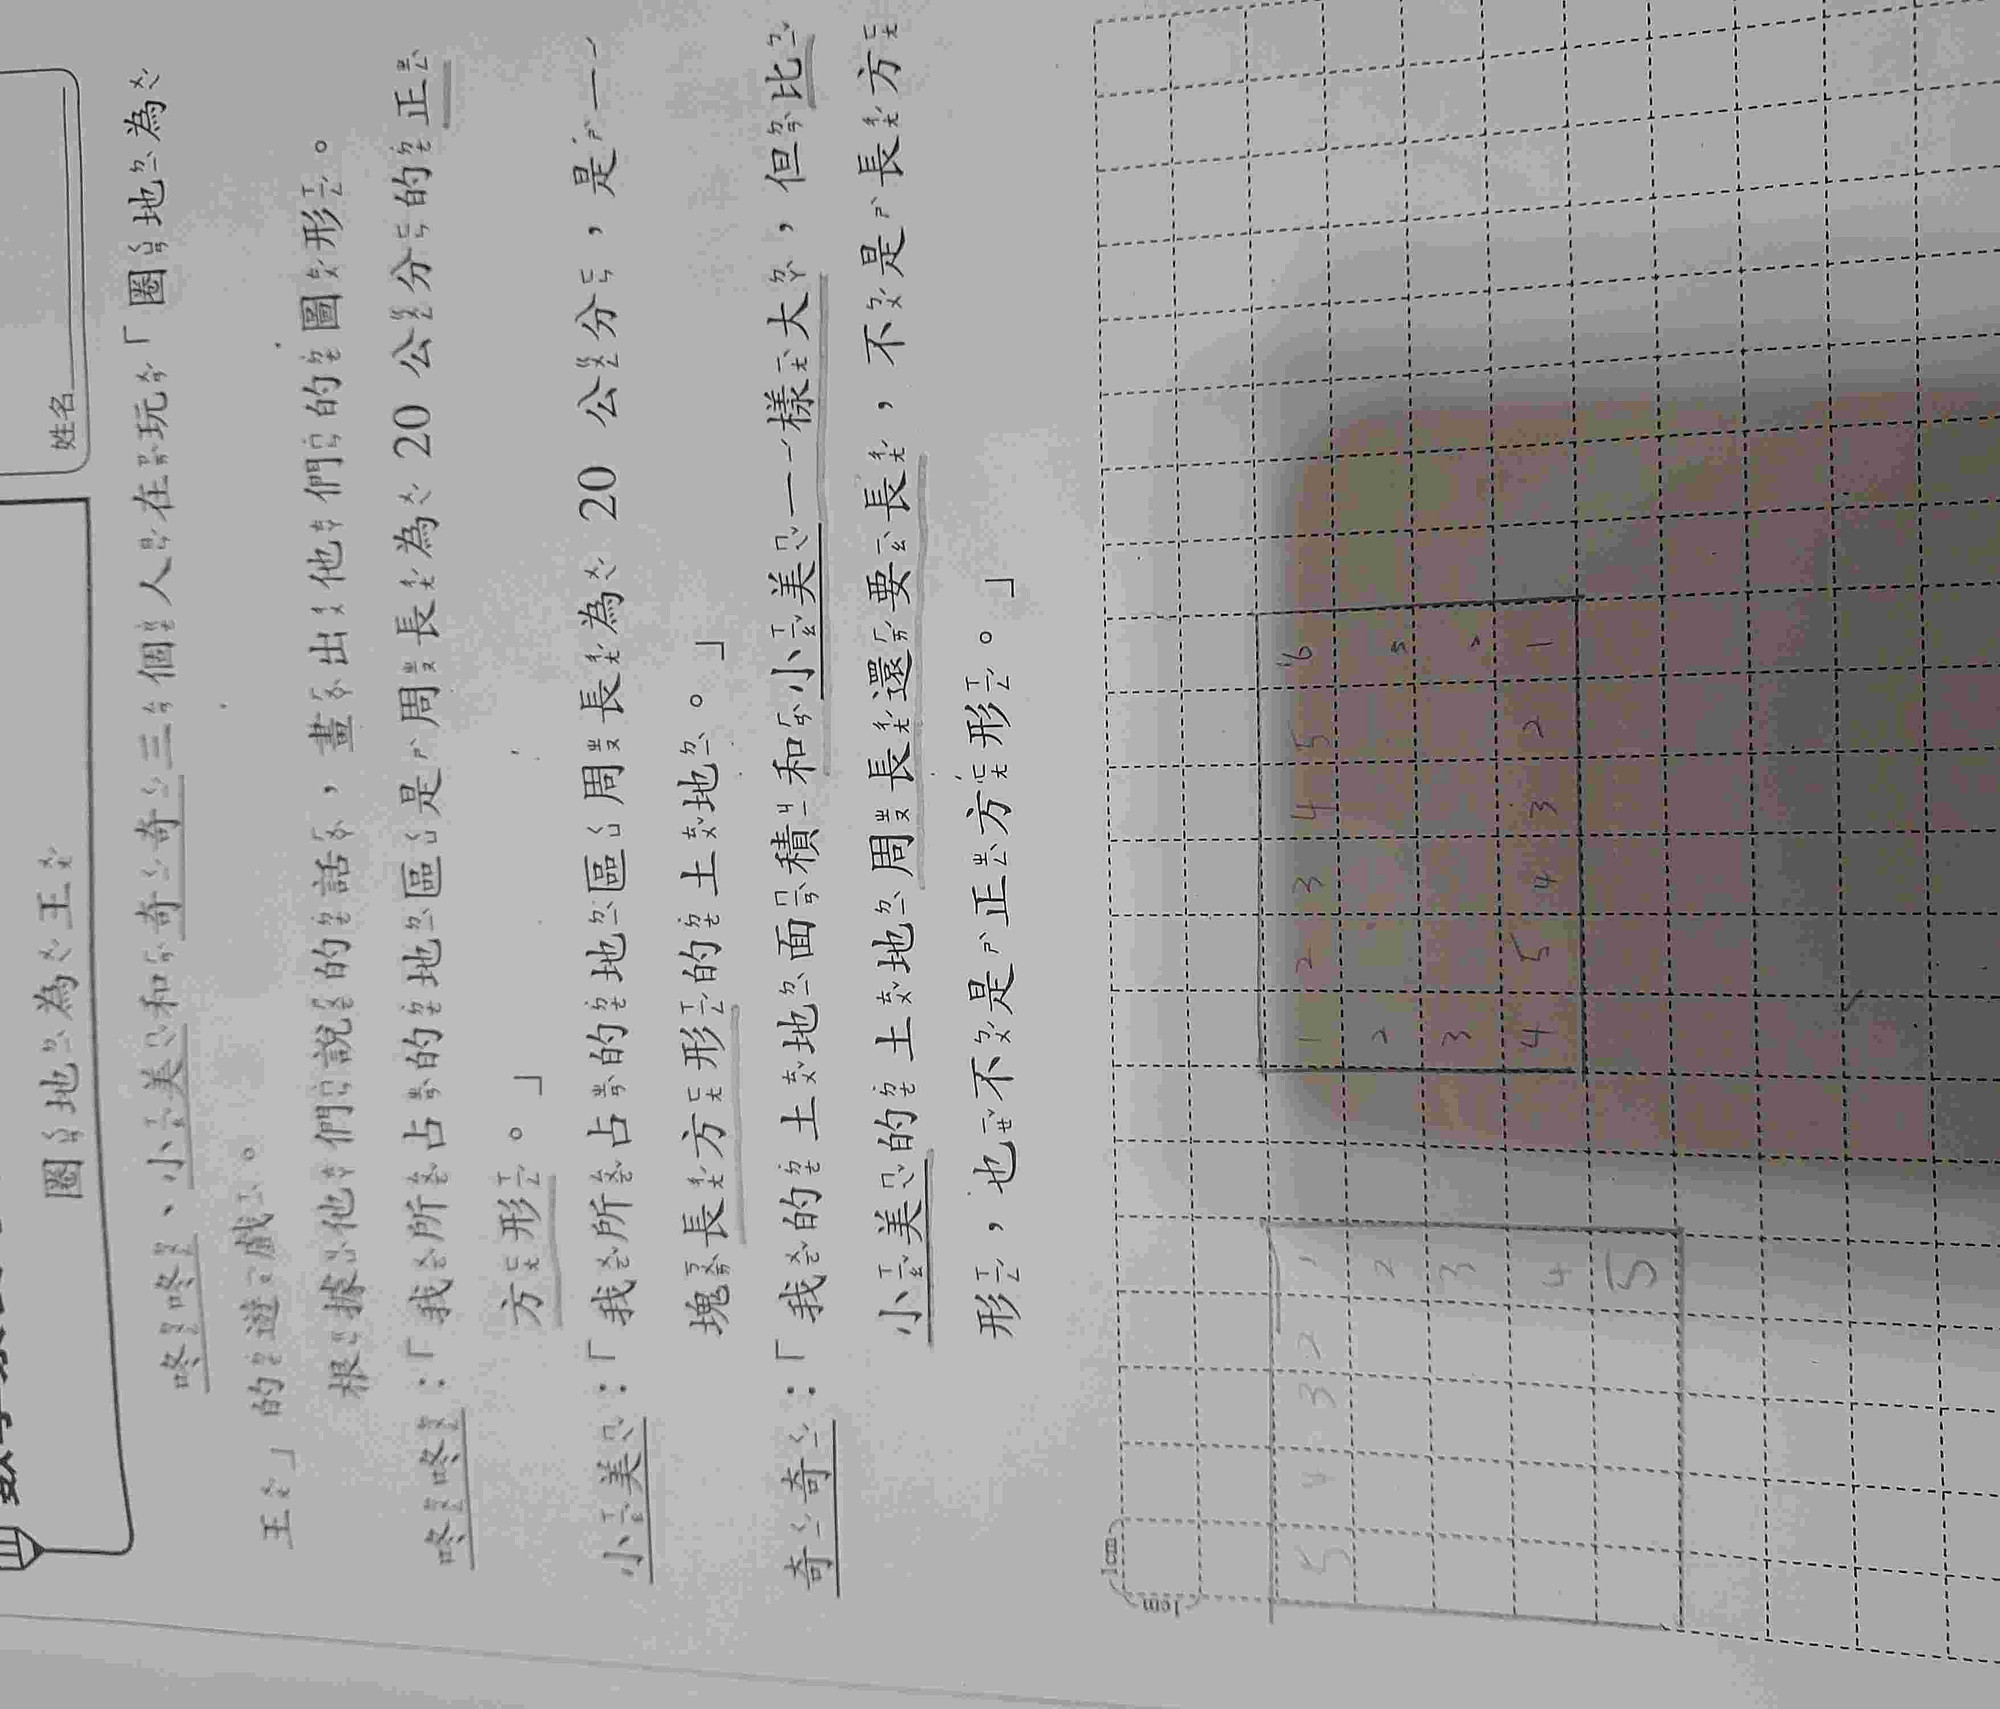 姓名
圈地為王
咚咚、小美和奇奇三個人在玩「圈地為
王」的遊戲。
根據他們說的話，畫出他們的圖形。
咚咚：「我所占的地區是周長為 20 公分的正
方形。」
小美：「我所占的地區周長為 20 公分，是一
塊長方形的土地。」
奇奇：「我的土地面積和小美一樣大，但比
小美的土地周長還要長，不是長方
形，也不是正方形。」
1cm
1cm
5 4 3 2 1
2
3
4
5
1 2 3 4 5 6
2 5
3
4 5 4 3 2 1